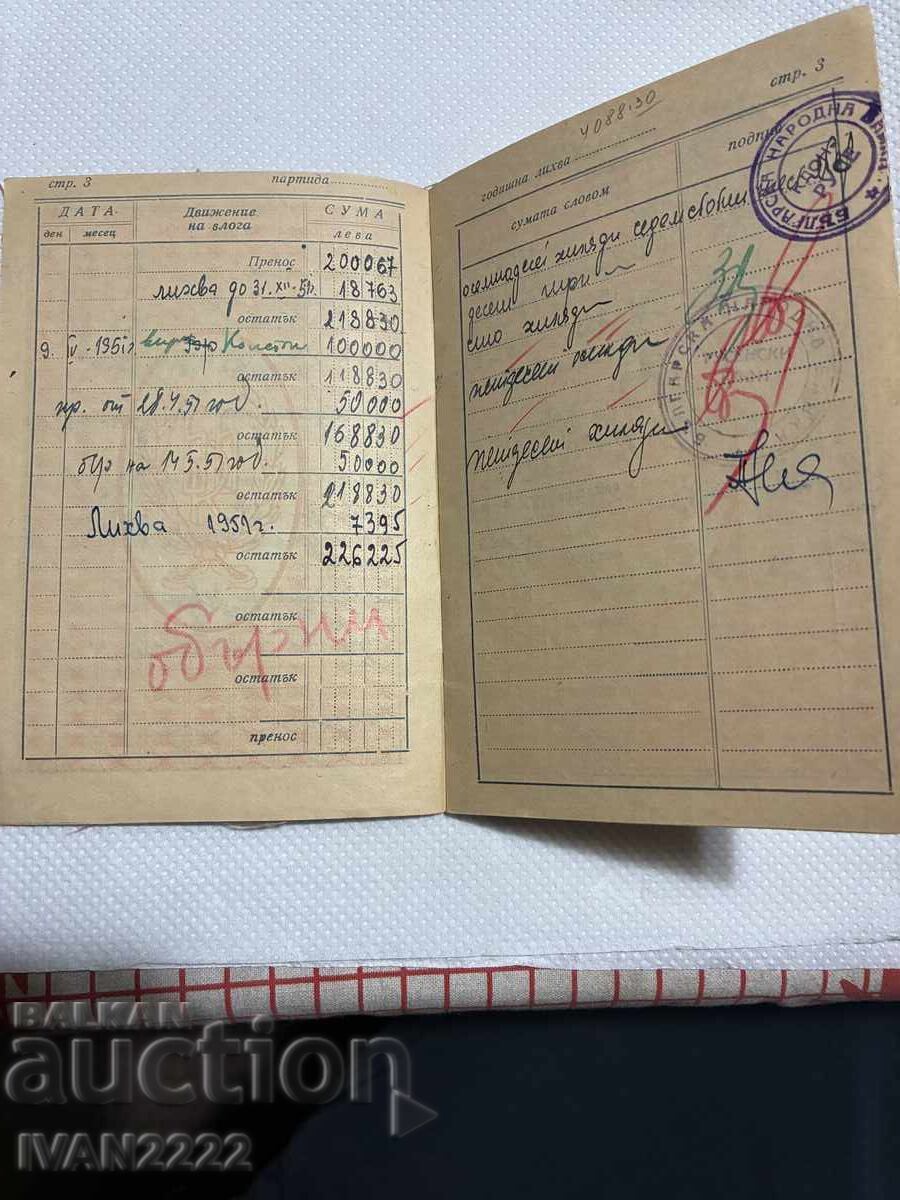 стр. 3
партида
ДАТА
Движение на влога
СУМА
ден
месец
лева
Пренос 200067
лихва до 31. XII - 50. 18763
остатък 218830
9. IV - 1951г. 100000
остатък 118830
пр. от 28.4.51 год. 50000
остатък 168830
бр на 14.5.51 год. 50000
остатък 218830
Лихва 1951г. 7395
остатък 226225
остатък
обърни
остатък
пренос
стр. 3
4088.30
годишна лихва
подпис
сумата словом
осемнадесет хиляди седемстотин
десет три
сто хиляди
петдесет хиляди
петдесет хиляди
БЪЛГАРСКА НАРОДНА БАНКА
РУСЕ
БЪЛГАРСКА НАРОДНА
BALKAN
auction
IVAN2222